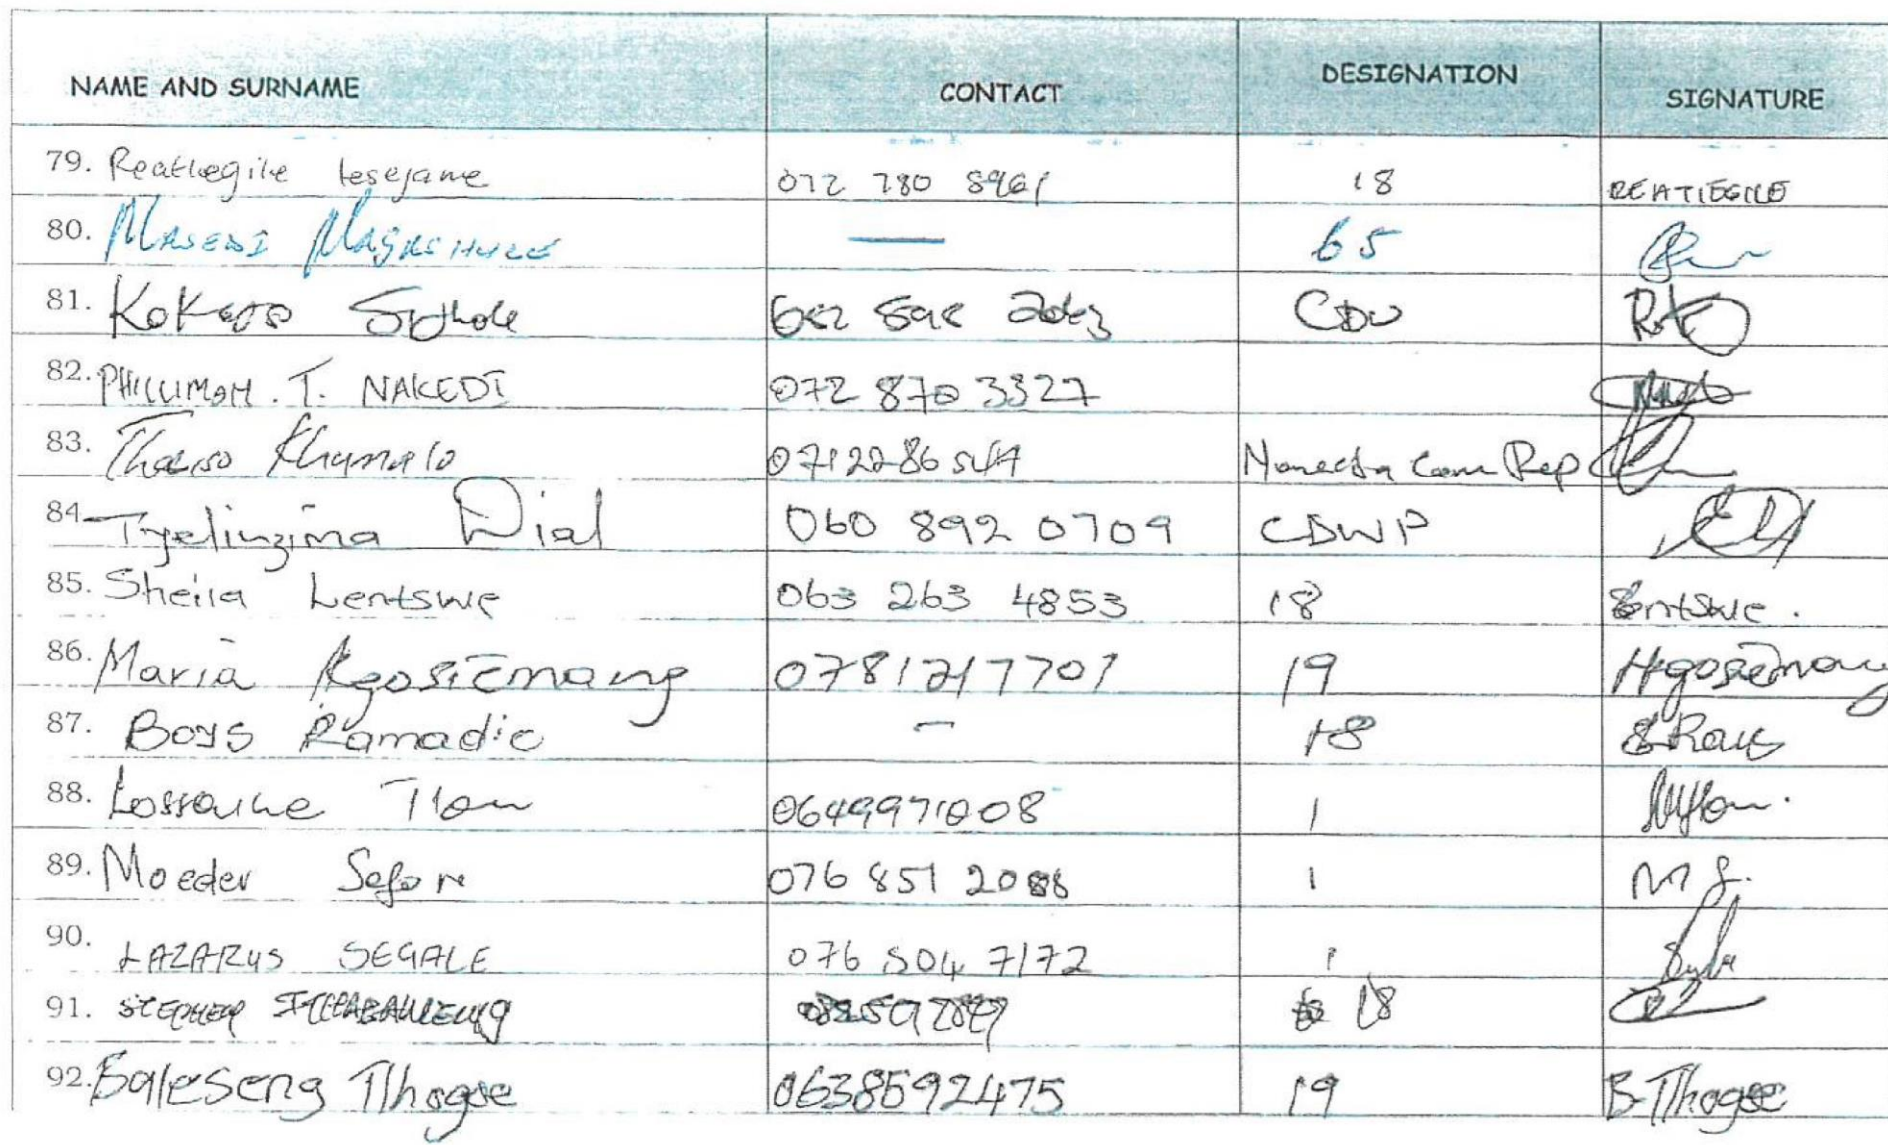 NAME AND SURNAME CONTACT DESIGNATION SIGNATURE
79. Reatlegile Lesejane 072 780 8961 18 REATLEGILE
80. MASEDI 65
81. CDW
82. PHILLIMON. T. NAKEDI 072 870 3327
83. Thabiso Khumalo Com Rep
84. Tyelinzima Dial 060 892 0709 CDWP
85. Sheila Lentswe 063 263 4853 18 Lentswe.
86. Maria Kgosiemang 0781217701 19 Kgosiemang
87. Boys Ramadie - 18
88. Lorraine Tlou 0649971008 1
89. Moeder Sefore 076 851 2088 1 M S.
90. LAZARUS SEGALE 076 504 7172 1
91. STEPHEN 18
92. Baleseng Tlhogoe 0638592475 19 B-Tlhogoe